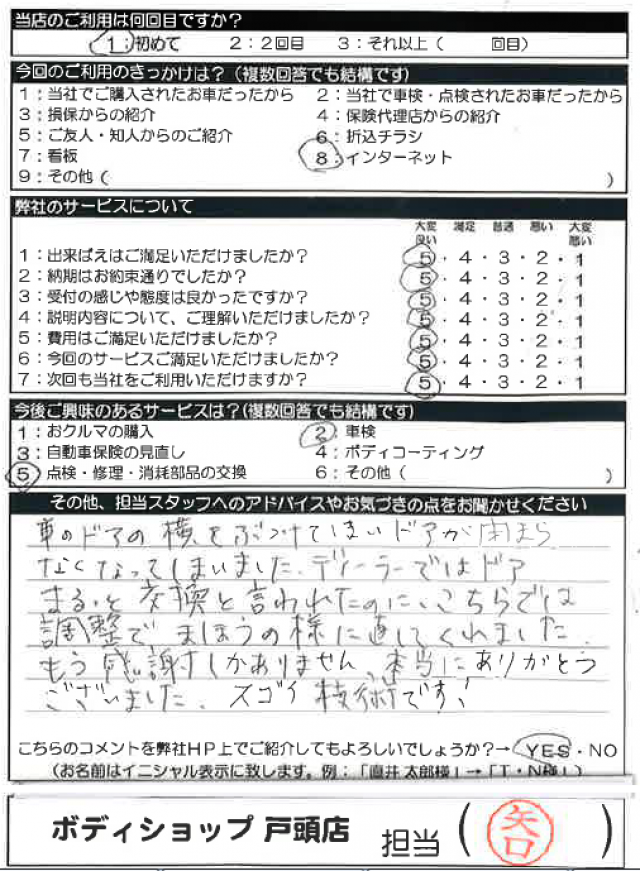 当店のご利用は何回目ですか?
1:初めて 2:2回目 3:それ以上( 回目)
今回のご利用のきっかけは?(複数回答でも結構です)
1:当社でご購入されたお車だったから 2:当社で車検・点検されたお車だったから
3:損保からの紹介 4:保険代理店からの紹介
5:ご友人・知人からのご紹介 6:折込チラシ
7:看板 8:インターネット
9:その他( )
弊社のサービスについて
大変良い 満足 普通 悪い 大変悪い
1:出来ばえはご満足いただけましたか? 5・4・3・2・1
2:納期はお約束通りでしたか? 5・4・3・2・1
3:受付の感じや態度は良かったですか? 5・4・3・2・1
4:説明内容について、ご理解いただけましたか? 5・4・3・2・1
5:費用はご満足いただけましたか? 5・4・3・2・1
6:今回のサービスご満足いただけましたか? 5・4・3・2・1
7:次回も当社をご利用いただけますか? 5・4・3・2・1
今後ご興味のあるサービスは?(複数回答でも結構です)
1:おクルマの購入 2:車検
3:自動車保険の見直し 4:ボディコーティング
5:点検・修理・消耗部品の交換 6:その他( )
その他、担当スタッフへのアドバイスやお気づきの点をお聞かせください
車のドアの横をぶつけてしまいドアが閉まら
なくなってしまいました。ディーラーではドア
まるごと交換と言われたのに、こちらでは
調整でまほうの様に直してくれました。
もう感謝しかありません、本当にありがとう
ございました。スゴイ技術です!
こちらのコメントを弊社HP上でご紹介してもよろしいでしょうか?→ YES・NO
(お名前はイニシャル表示に致します。例:「直井 太郎様」→「T・N様」)
ボディショップ 戸頭店 担当( 矢口 )